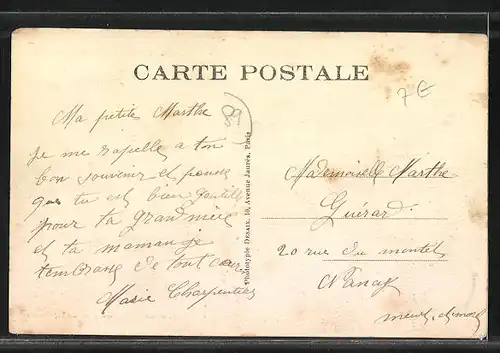 CARTE POSTALE
7€
89
Ma petite Marthe
Je me rapelle a ton
bon souvenir et pense
que tu est bien gentille
pour ta grand mère
et ta maman je
t'embrasse de tout cœur
Marie Charpentier
Phototypie DESAIX, 10, Avenue Jaurès, Paris
Mademoiselle Marthe
Guérard
20 rue du montet
Nancy